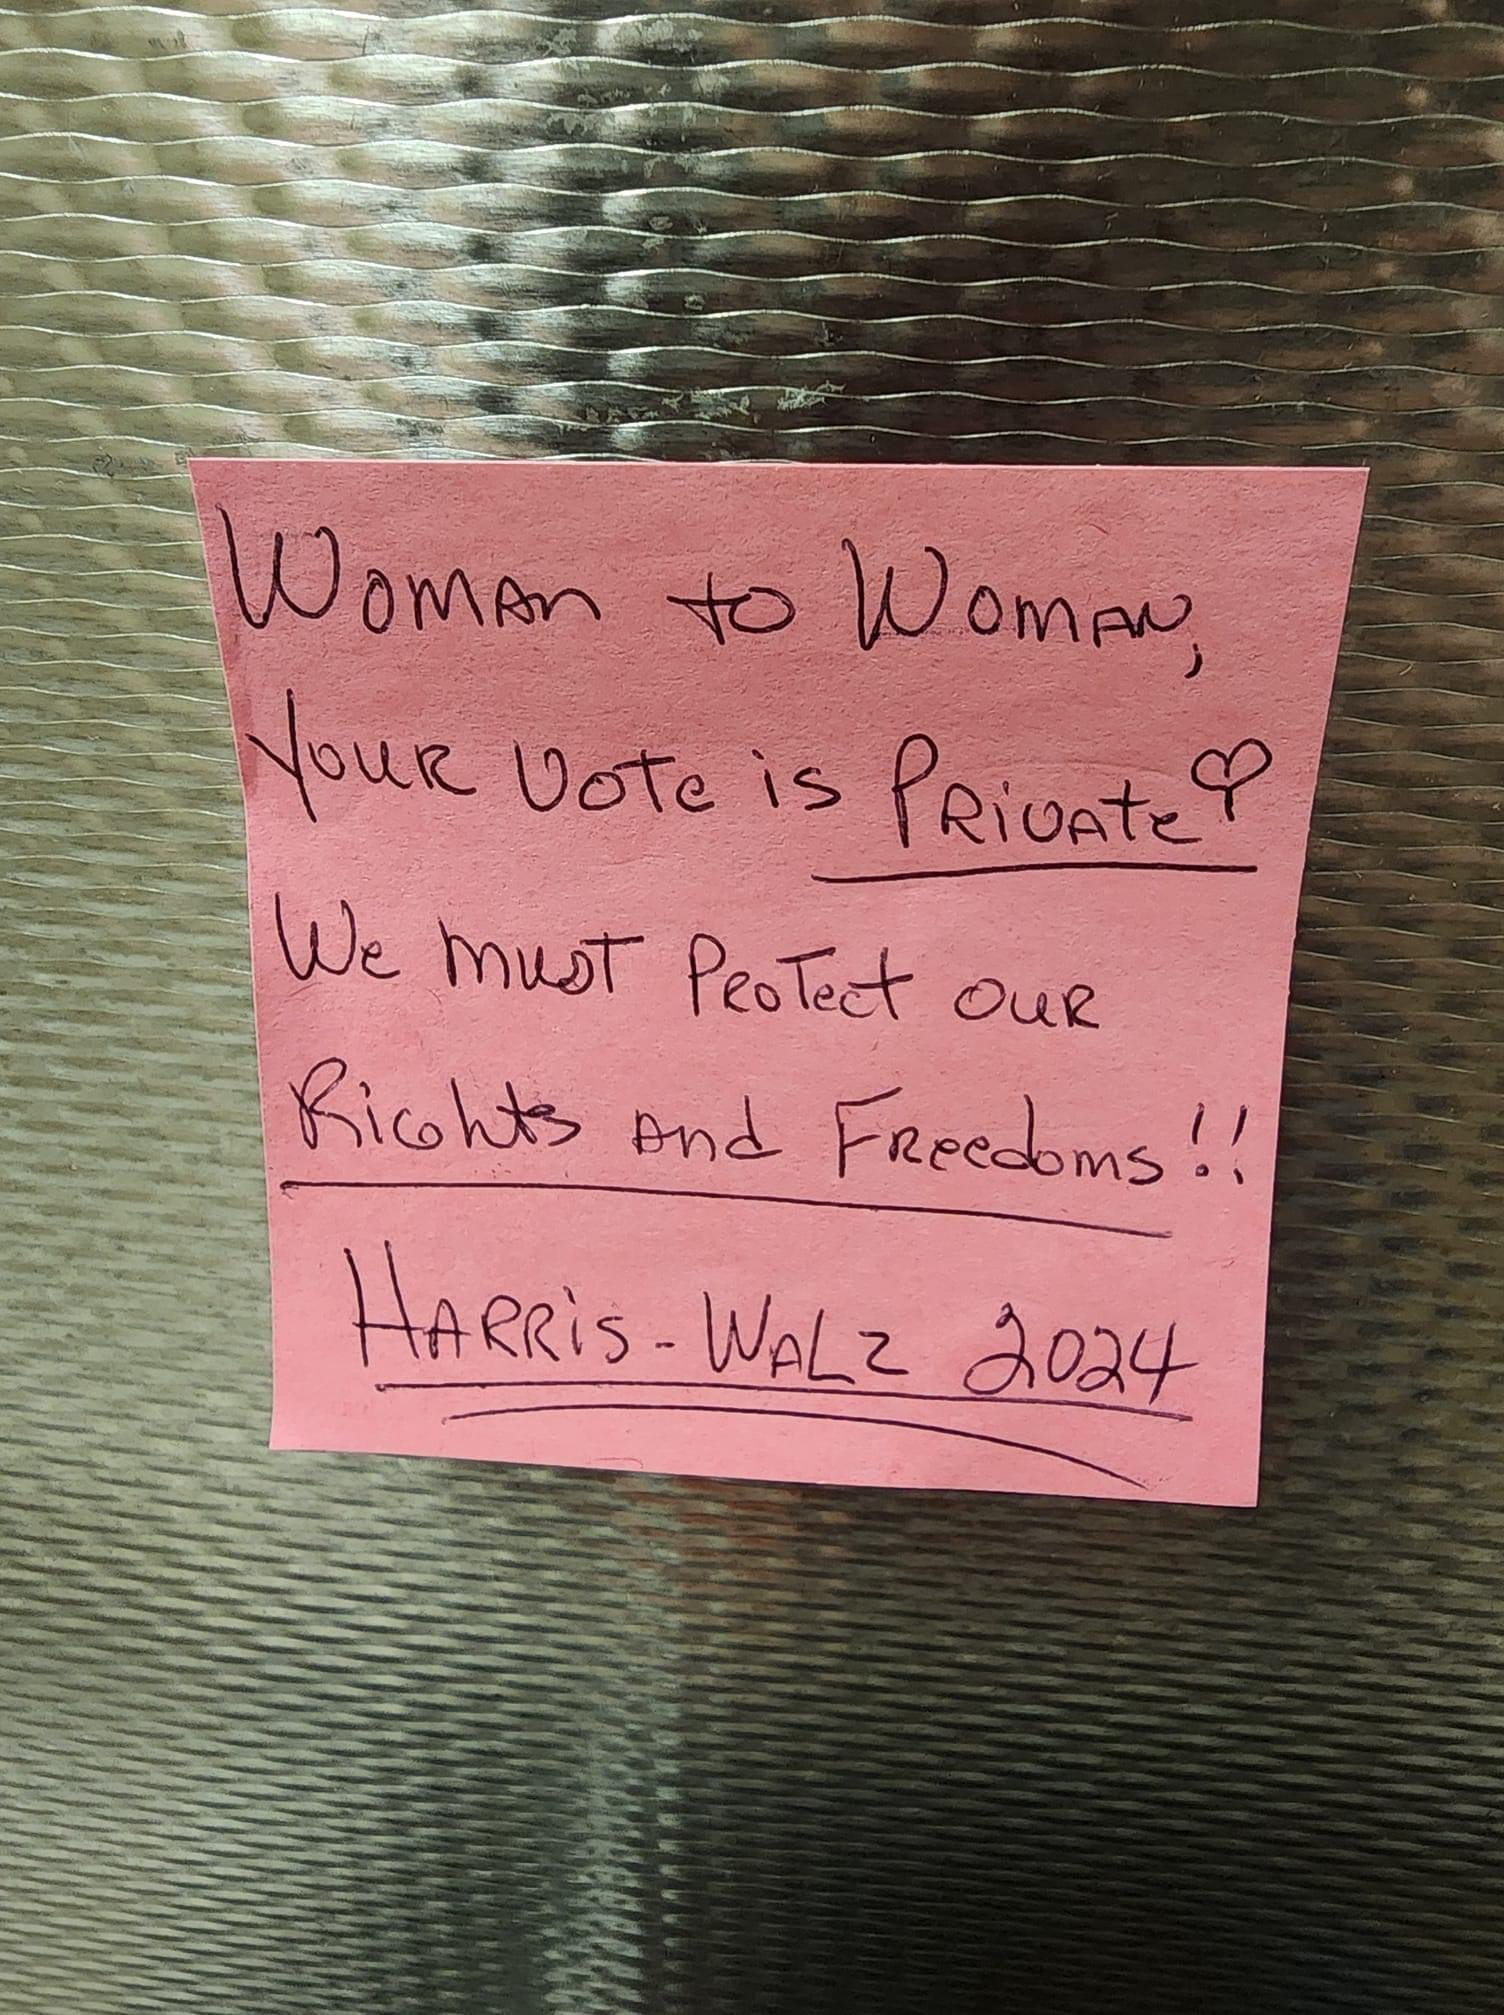 Woman to Woman,
Your vote is Private♡
We must Protect our
Rights and Freedoms!!
Harris-Walz 2024